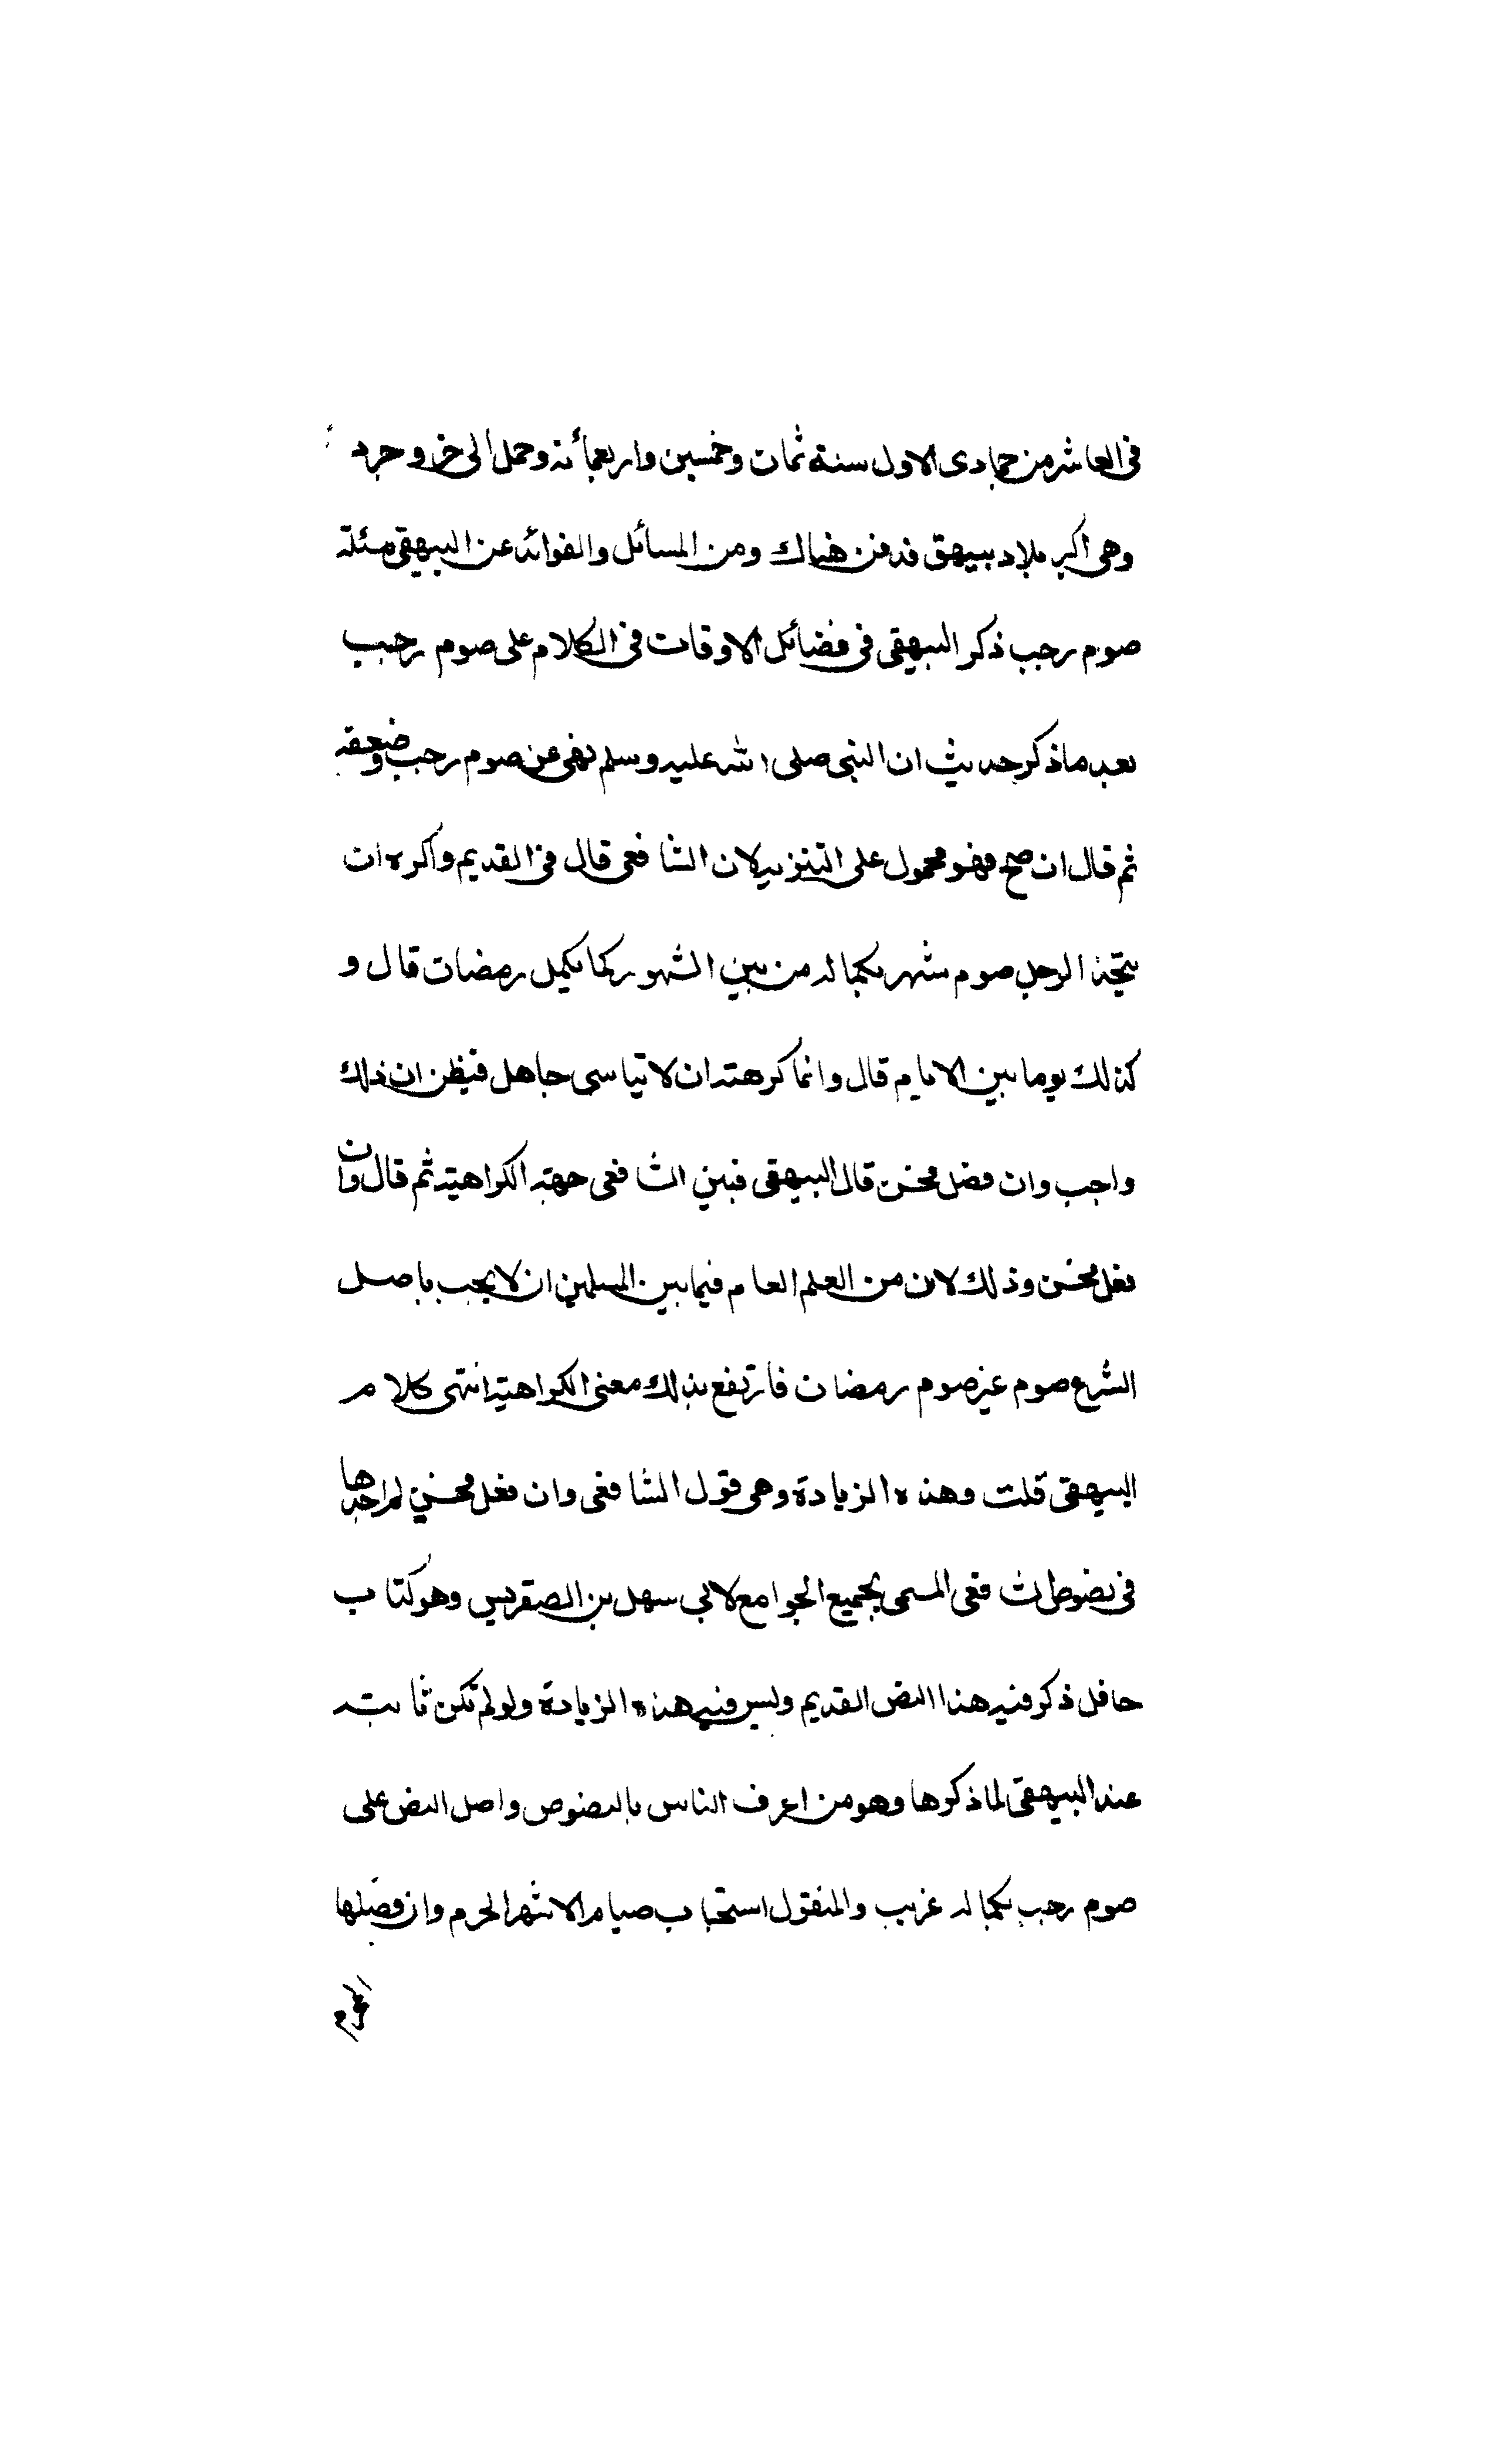 فى العاشر من جمادى الاول سنة ثمان وخمسين واربعمائة وحمل الى خروجرد
وهى اكبر بلاد بيهق فدفن هناك ومن المسائل والفوائد عن البيهقى مسئلة
صوم رجب ذكر البيهقى فى فضائل الاوقات فى الكلام على صوم رجب
بعد ما ذكر حديث ان النبى صلى الله عليه وسلم نهى عن صوم رجب وضعفه
ثم قال ان صح فهو محمول على التنزيه لان الشافعى قال فى القديم واكره ان
يتخذ الرجل صوم شهر بكماله من بين الشهور كما يكمل رمضان قال و
كذلك يوما بين الايام قال وانما كرهته ان لا يتاسى جاهل فيظن ان ذلك
واجب وان فضل فحسن قال البيهقى فبين الشافعى جهة الكراهية ثم قال وان
فعل فحسن وذلك لان من العلم العام فيما بين المسلمين ان لا يجب باصل
الشرع صوم غير صوم رمضان فارتفع بذلك معنى الكراهية انتهى كلام
البيهقى قلت وهذه الزيادة وهى قول الشافعى وان فعل فحسن لم اجدها
فى نصوص الشافعى المسمى بجميع الجوامع لابى سهل بن الصقريس وهو كتاب
حافل ذكر فيه هذا النص القديم وليس فيه هذه الزيادة ولو لم تكن ثابتة
عند البيهقى لما ذكرها وهو من اعرف الناس بالنصوص واصل النص على
صوم رجب بكماله غريب والمنقول استحباب صيام الاشهر الحرم وان فضلها